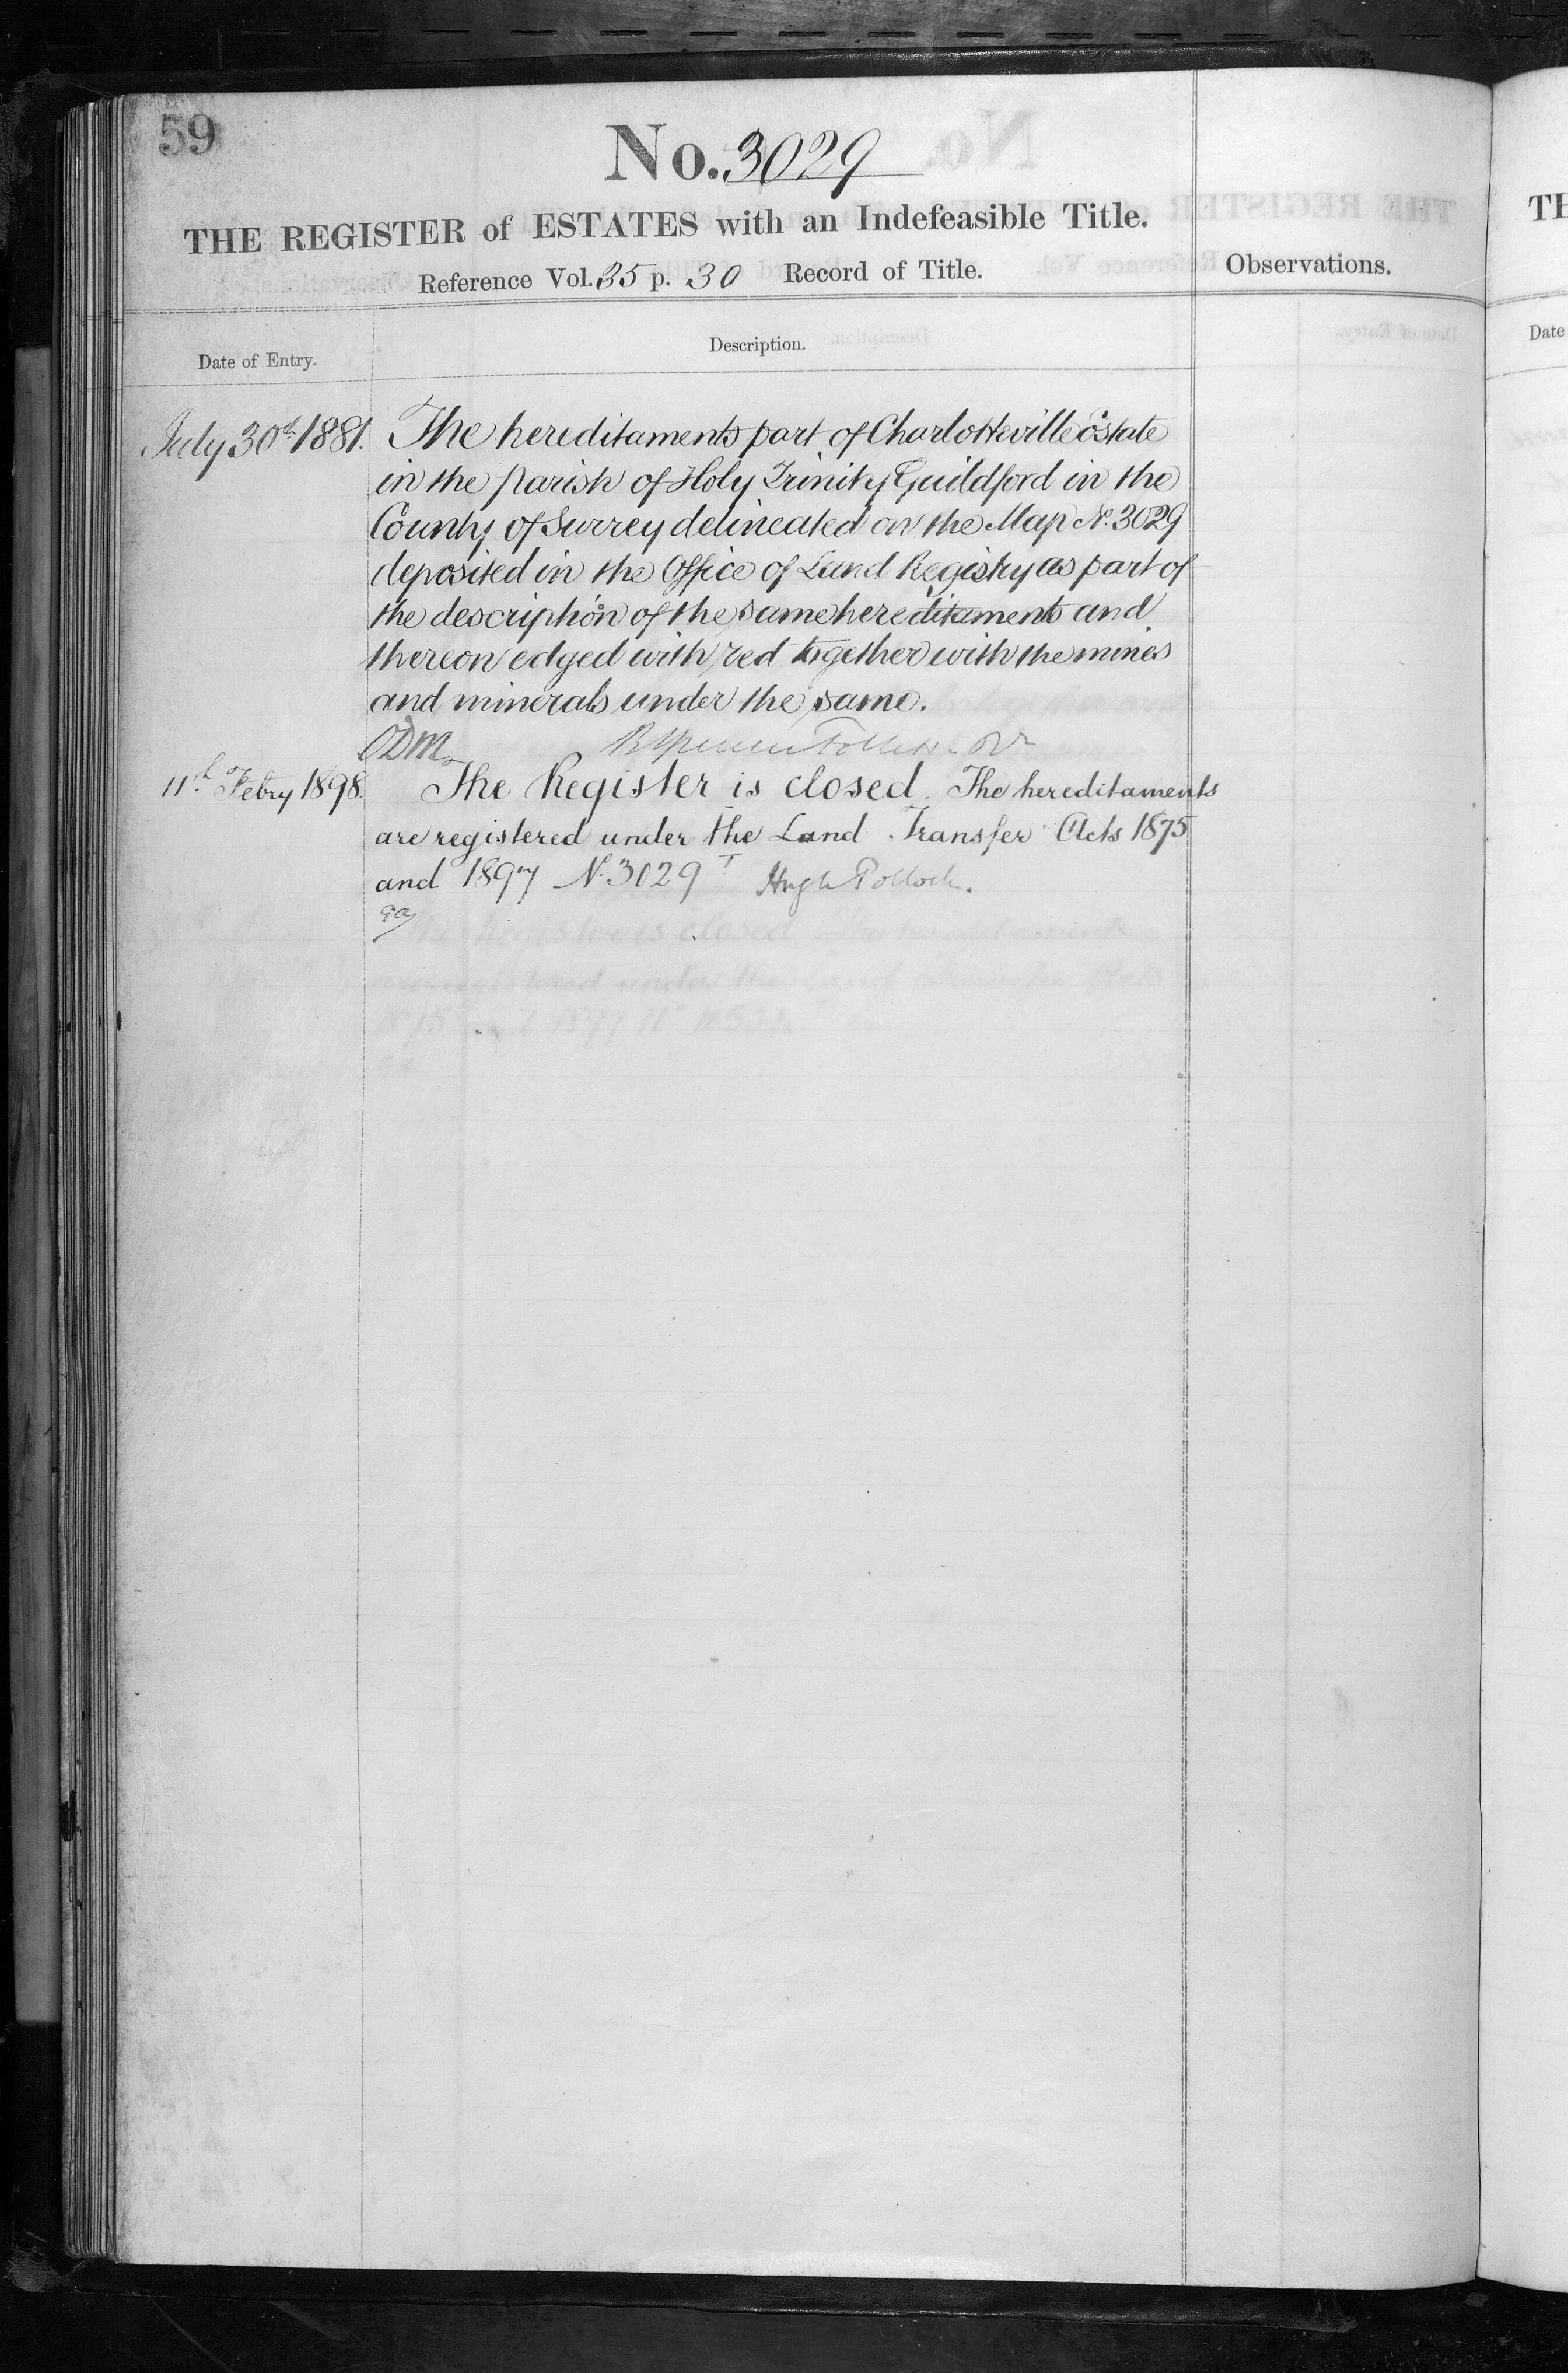 59
No. 3029
THE REGISTER of ESTATES with an Indefeasible Title.
Reference Vol. 35 p. 30 Record of Title.
Observations.
Date of Entry.
Description.
July 30th 1881. The hereditaments part of Charlotteville Estate
in the Parish of Holy Trinity Guildford in the
County of Surrey delineated on the Map No. 3029
deposited in the Office of Land Registry as part of
the description of the same hereditaments and
thereon edged with red together with the mines
and minerals under the same.
ODM.
11th Febry 1898. The Register is closed. The hereditaments
are registered under the Land Transfer Acts 1875
and 1897 No. 3029 T Hugh Pollock.
TH
Date